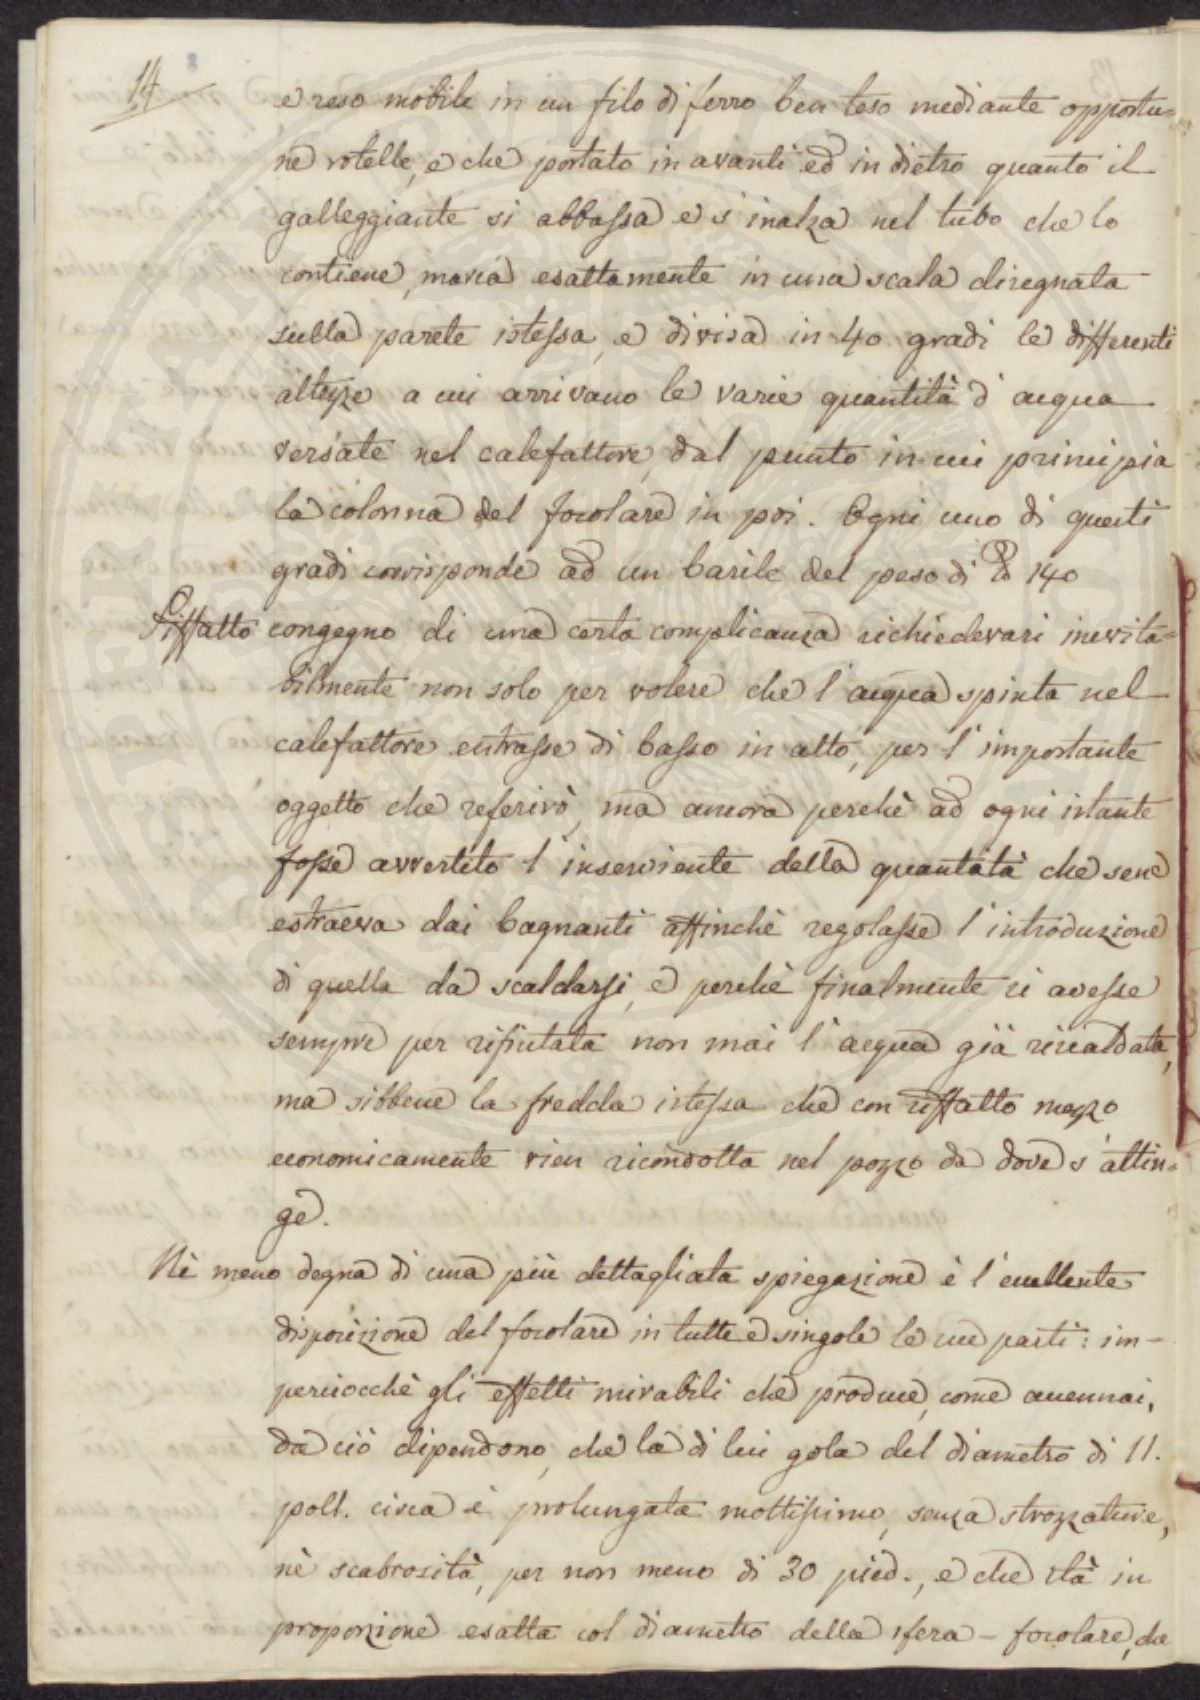 14
8
e reso mobile in un filo di ferro ben teso mediante opportu=
ne rotelle, e che portato in avanti ed in dietro quanto il
galleggiante si abbassa e s'inalza nel tubo che lo
contiene, marca esattamente in una scala disegnata
sulla parete istessa, e divisa in 40 gradi le differenti
altezze a cui arrivano le varie quantità d'acqua
versate nel calefattore, dal punto in cui principia
la colonna del focolare in poi. Ogni uno di questi
gradi corrisponde ad un barile del peso di 140
Siffatto congegno di una certa complicanza richiedevasi inevita=
bilmente non solo per volere che l'acqua spinta nel
calefattore entrasse di basso in alto, per l'importante
oggetto che referirò, ma ancora perchè ad ogni istante
fosse avvertito l'inserviente della quantità che sene
estraeva dai bagnanti affinchè regolasse l'introduzione
di quella da scaldarsi, e perchè finalmente si avesse
sempre per rifiutata non mai l'acqua già riscaldata,
ma sibbene la fredda istessa che con siffatto mezzo
economicamente vien ricondotta nel pozzo da dove s'attin=
ge.
Nè meno degna di una più dettagliata spiegazione è l'eccellente
disposizione del focolare in tutte e singole le sue parti: im-
perciocchè gli effetti mirabili che produce, come accennai,
da ciò dipendono, che la di lui gola del diametro di 11.
poll. circa è prolungata moltissimo, senza strozzature,
nè scabrosità, per non meno di 30 pied., e che stà in
proporzione esatta col diametro della sfera-focolare, che